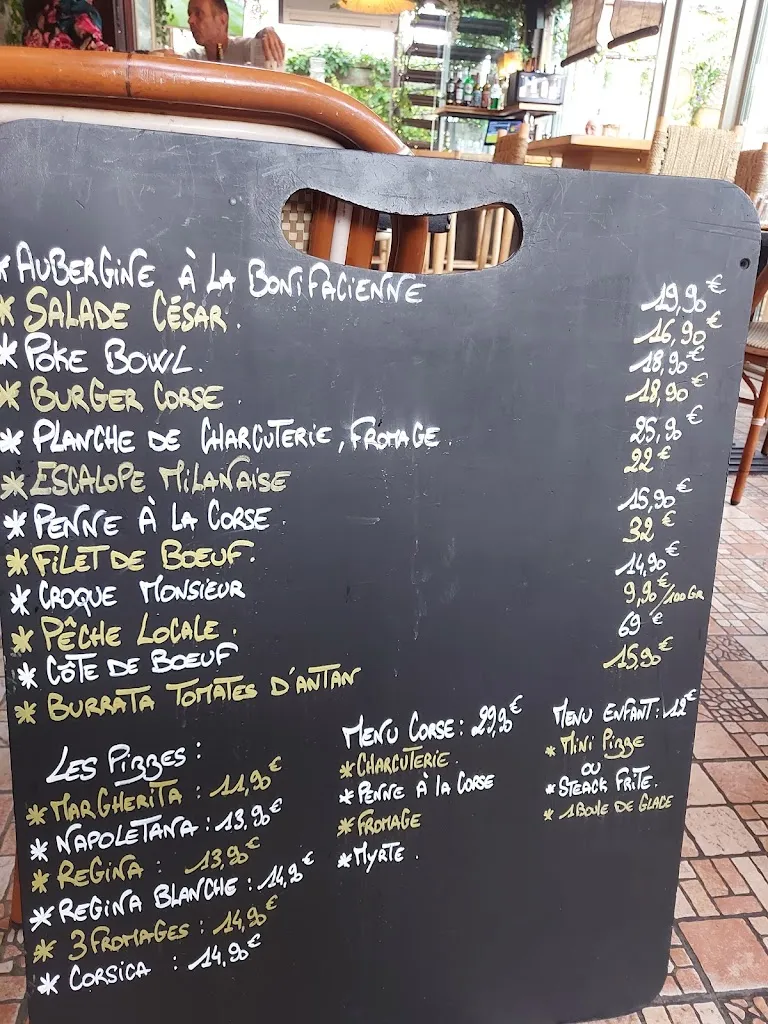 * AUBERGINE À LA BONIFACIENNE 19,90€
* SALADE CÉSAR. 16,90€
* POKE BOWL. 18,90€
* BURGER CORSE. 18,90€
* PLANCHE DE CHARCUTERIE, FROMAGE. 25,90€
* ESCALOPE MILANAISE 22€
* PENNE À LA CORSE. 15,90€
* FILET DE BOEUF. 32€
* CROQUE MONSIEUR 14,90€
* PÊCHE LOCALE. 9,90€/100GR
* CÔTE DE BOEUF 69€
* BURRATA TOMATES D'ANTAN 15,90€
LES PIZZES :
* MARGHERITA : 11,90€
* NAPOLETANA : 13,90€
* REGINA : 13,90€
* REGINA BLANCHE : 14,90€
* 3 FROMAGES : 14,90€
* CORSICA : 14,90€
MENU CORSE : 29,90€
* CHARCUTERIE.
* PENNE À LA CORSE
* FROMAGE
* MYRTE.
MENU ENFANT : 12€
* MINI PIZZE
OU
* STEACK FRITE.
* 1 BOULE DE GLACE